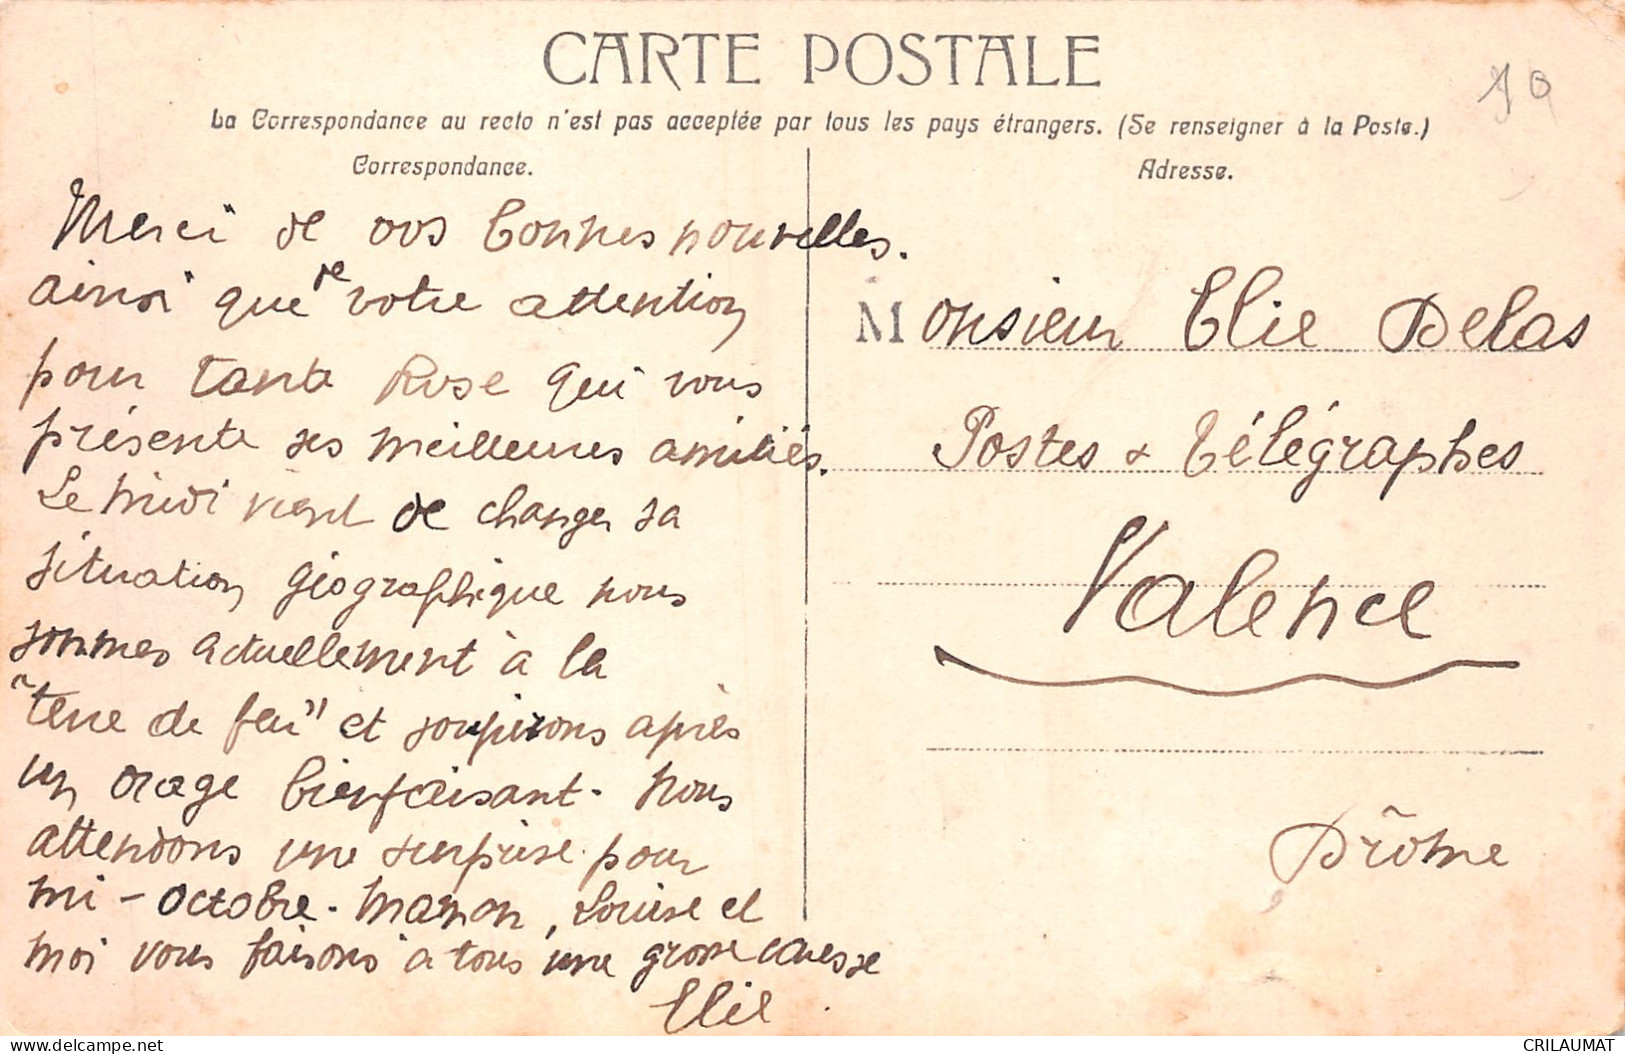 CARTE POSTALE
La Correspondance au recto n'est pas acceptée par tous les pays étrangers. (Se renseigner à la Poste.)
Correspondance.
Adresse.
Merci de vos bonnes nouvelles.
ainsi que de votre attention
pour tante Rose qui vous
présente ses meilleures amitiés.
Le midi vient de changer sa
situation géographique nous
sommes actuellement à la
"terre de feu" et soupirons après
un orage bienfaisant. Nous
attendons une surprise pour
mi-octobre. Manon, Louise et
moi vous faisons à tous une grosse caresse
Elie
Monsieur Elie Delas
Postes & Télégraphes
Valence
Drôme
delcampe.net
CRILAUMAT